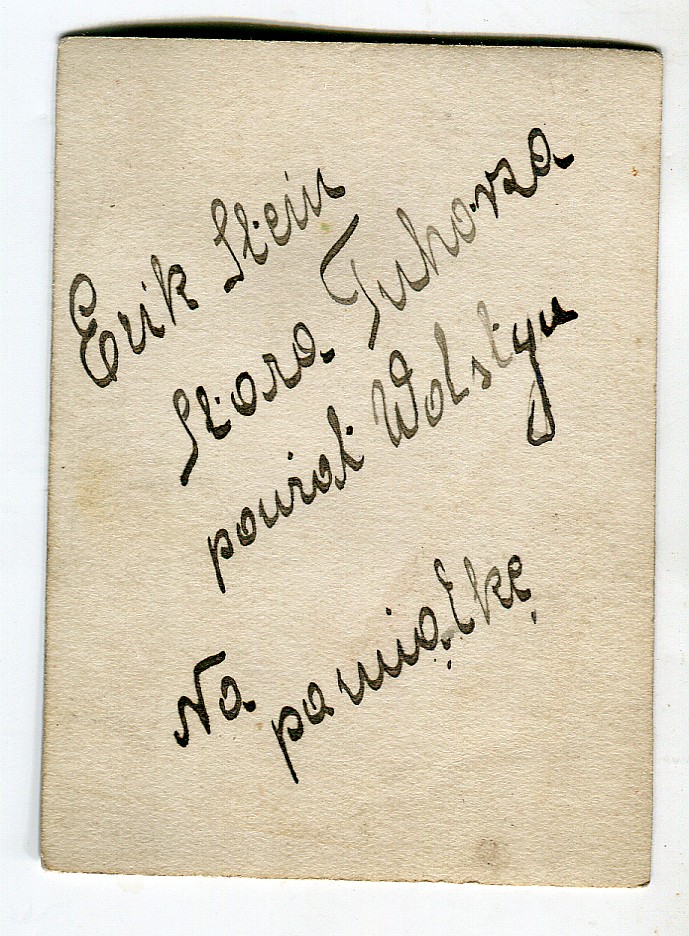 Erik Stein
Stara Tuhorza
powiat Wolstyn
Na pamiątkę